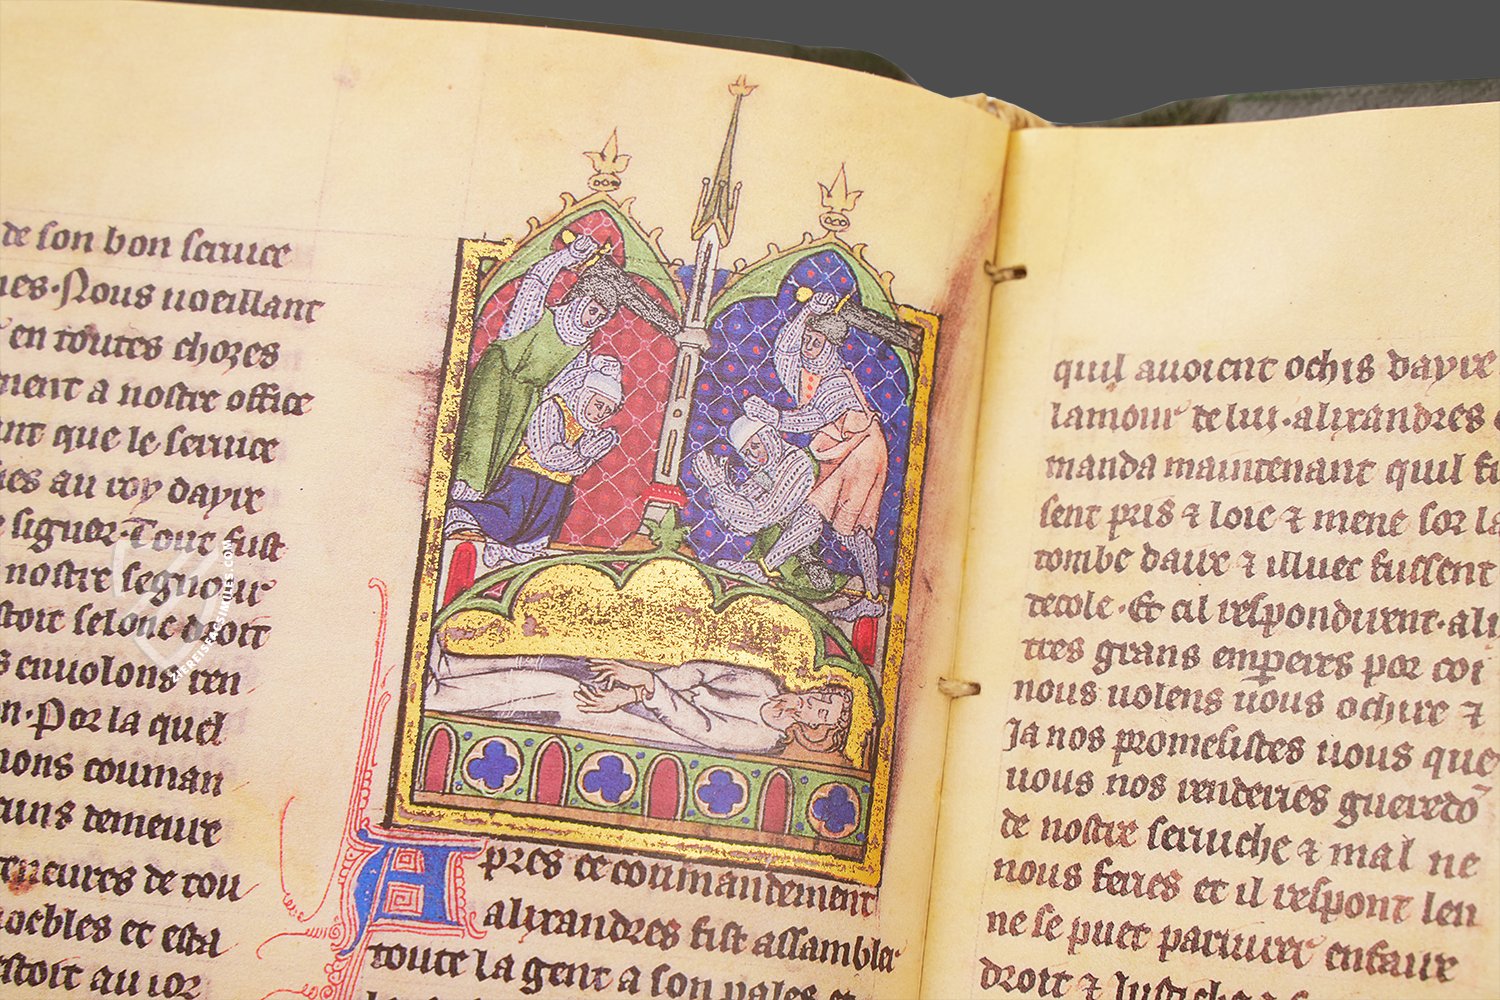 de son bon seruice
nes · Nous uoeillant
en toutes chozes
ment a nostre office
ant que le seruice
hes au roy dayre
e signer · Tout fust
nostre segnour
stoit selonc droit
s enuolons ren
n · Por la quel
mons couman
cuns demeure
de tou
moebles et esta
estoit au ior
Apres ce coumandement
alixandres fist assambler
toute la gent a son pales et
quil auoient ochis dayre
lamour de lui · alixandres
manda maintenant quil fu
sent pris ⁊ loie ⁊ mene sor la
tombe daire ⁊ illuec fuissent
decole · Et cil respondirent · ali
tres grans emperes por coi
nous uolens uous ochire ⁊
Ja nos promesistes uous que
uous nos renderies gueredō
de nostre seruiche ⁊ mal ne
nous feries et il respont len
ne se puet partuer enfaire
droit ⁊